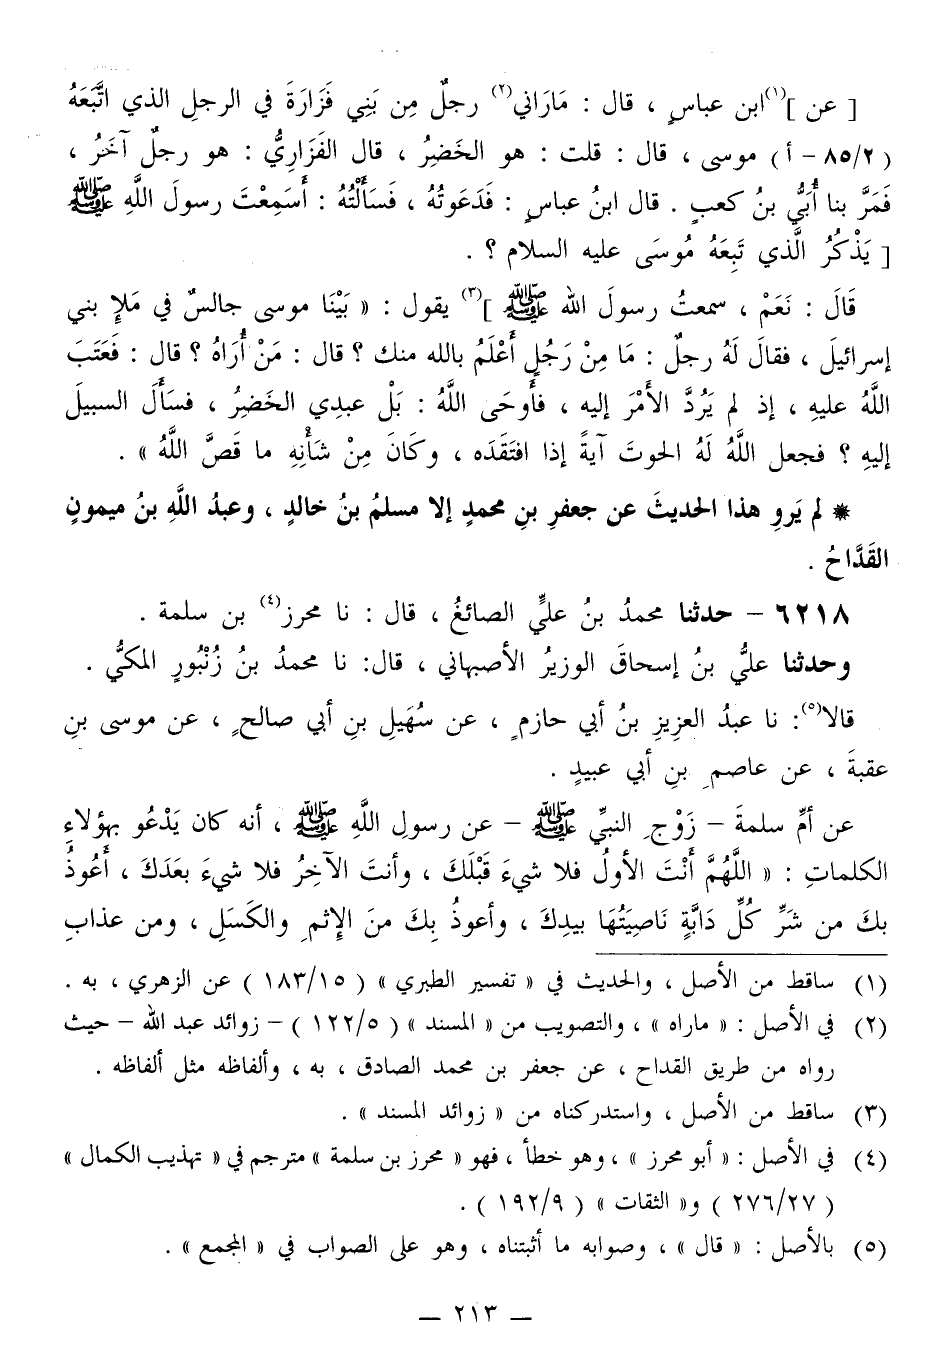 [ عن ](١)ابن عباسٍ ، قال : مَارَاني(٢) رجلٌ مِن بَنِي فَزَارَةَ في الرجلِ الذي اتَّبَعَهُ
( ٨٥/٢ – أ ) موسى ، قال : قلت : هو الخَضِرُ ، قال الفَزَارِيُّ : هو رجلٌ آخَرُ ،
فَمَرَّ بنا أُبَيُّ بنُ كعبٍ . قال ابنُ عباسٍ : فَدَعَوتُهُ ، فَسَأَلْتُهُ : أَسَمِعْتَ رسولَ اللَّهِ ﷺ
[ يَذْكُرُ الَّذي تَبِعَهُ مُوسَى عليه السلام ؟ .
قَالَ : نَعَمْ ، سمعتُ رسولَ الله ﷺ ](٣) يقول : « بَيْنَا موسى جالسٌ في مَلإٍ بني
إسرائيلَ ، فقالَ لَهُ رجلٌ : مَا مِنْ رَجُلٍ أَعْلَمُ بالله منك ؟ قال : مَنْ أُرَاهُ ؟ قال : فَعَتَبَ
اللَّهُ عليهِ ، إذ لم يَرُدَّ الأَمْرَ إليه ، فأَوحَى اللَّهُ : بَلْ عبدِي الخَضِرُ ، فسَأَلَ السبيلَ
إليهِ ؟ فجعل اللَّهُ لَهُ الحوتَ آيةً إذا افتَقَدَه ، وكَانَ مِنْ شَأْنِهِ ما قَصَّ اللَّهُ » .
* لم يَروِ هذا الحديثَ عن جعفرِ بنِ محمدٍ إلا مسلمُ بنُ خالدٍ ، وعبدُ اللَّهِ بنُ ميمونٍ
القَدَّاحُ .
٦٢١٨ – حدثنا محمدُ بنُ عليٍّ الصائغُ ، قال : نا محرز(٤) بن سلمة .
وحدثنا عليُّ بنُ إسحاقَ الوزيرُ الأصبهاني ، قال: نا محمدُ بنُ زُنْبُورٍ المكيُّ .
قالا(٥): نا عبدُ العزيزِ بنُ أبي حازمٍ ، عن سُهَيلِ بنِ أبي صالحٍ ، عن موسى بنِ
عقبةَ ، عن عاصمِ بنِ أبي عبيدٍ .
عن أمِّ سلمةَ – زَوْجِ النبيِّ ﷺ – عن رسولِ اللَّهِ ﷺ ، أنه كان يَدْعُو بهؤلاءِ
الكلماتِ : « اللَّهُمَّ أَنْتَ الأولُ فلا شيءَ قَبْلَكَ ، وأنتَ الآخِرُ فلا شيءَ بعدَكَ ، أَعُوذُ
بكَ من شَرِّ كُلِّ دَابَّةٍ نَاصِيَتُهَا بيدِكَ ، وأعوذُ بِكَ منَ الإثمِ والكَسَلِ ، ومن عذابِ
(١) ساقط من الأصل ، والحديث في « تفسير الطبري » ( ١٨٣/١٥ ) عن الزهري ، به .
(٢) في الأصل : « ماراه » ، والتصويب من « المسند » ( ١٢٢/٥ ) – زوائد عبد الله – حيث
رواه من طريق القداح ، عن جعفر بن محمد الصادق ، به ، وألفاظه مثل ألفاظه .
(٣) ساقط من الأصل ، واستدركناه من « زوائد المسند » .
(٤) في الأصل : « أبو محرز » ، وهو خطأ ، فهو « محرز بن سلمة » مترجم في « تهذيب الكمال »
( ٢٧٦/٢٧ ) و« الثقات » ( ١٩٢/٩ ) .
(٥) بالأصل : « قال » ، وصوابه ما أثبتناه ، وهو على الصواب في « المجمع » .
– ٢١٣ –